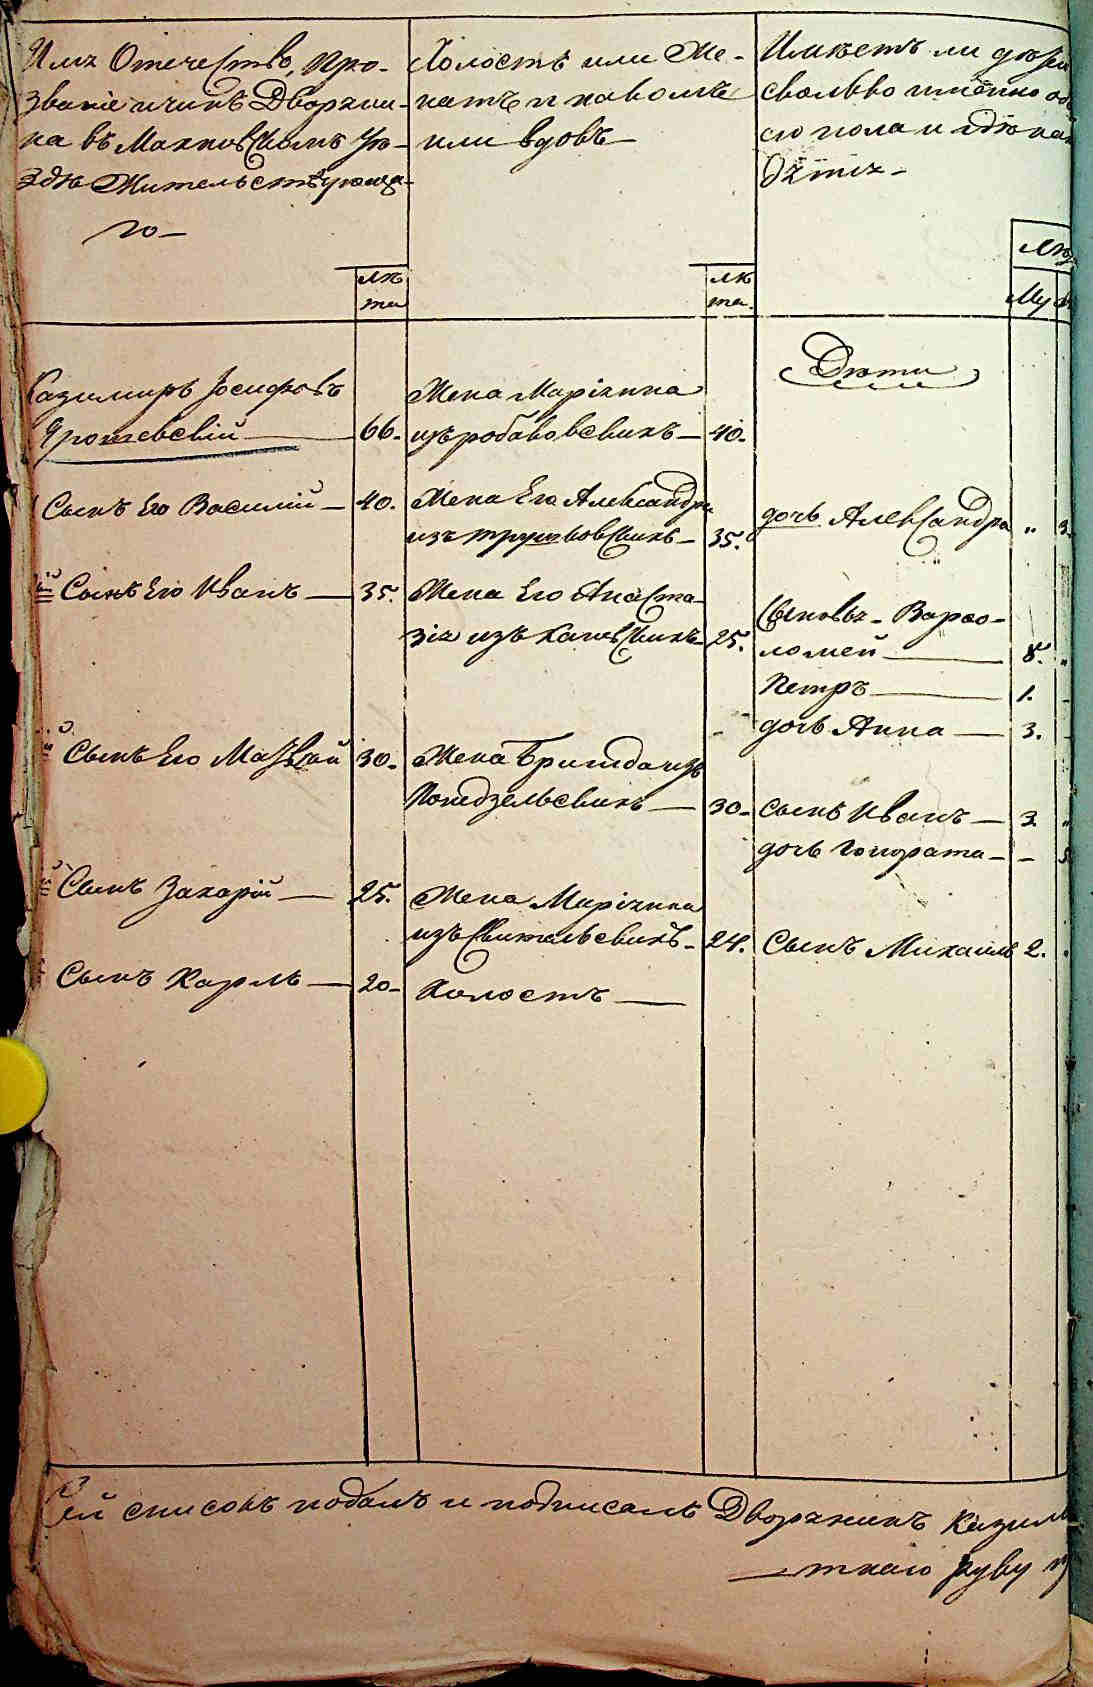 Имя Отечество, Про-
звание и чинъ Дворяни-
на въ Махновскомъ Уѣ-
здѣ Жительствующа-
го-
лѣ
та
Холостъ или Же-
натъ и на комъ
или вдовъ
лѣ
та
Имѣетъ ли дѣтей
сколько именно
его пола и гдѣ на
дятся-
Му
Дѣти
Казимиръ Іосифовъ
Ярошевскій 66.
Жена Маріянна
изъ робаковскихъ 40.
Сынъ Его Василий 40.
Жена Его Александра
изъ 35.
дочь Александра „ 3
Сынъ Его Иванъ 35.
Жена Его Анаста-
зія изъ каневскихъ 25.
Сыновья- Варфо-
ломей 8. „
Петръ 1.
дочь Анна 3.
Сынъ Его Матвѣй 30.
Жена Бригида изъ
30.
Сынъ Иванъ 3 „
дочь Гонората - 5
Сынъ Захарій 25.
Жена Маріянна
изъ 24.
Сынъ Михаилъ 2.
Сынъ Карлъ 20
Холостъ
Сей списокъ подалъ и подписалъ Дворянинъ Казим
руку